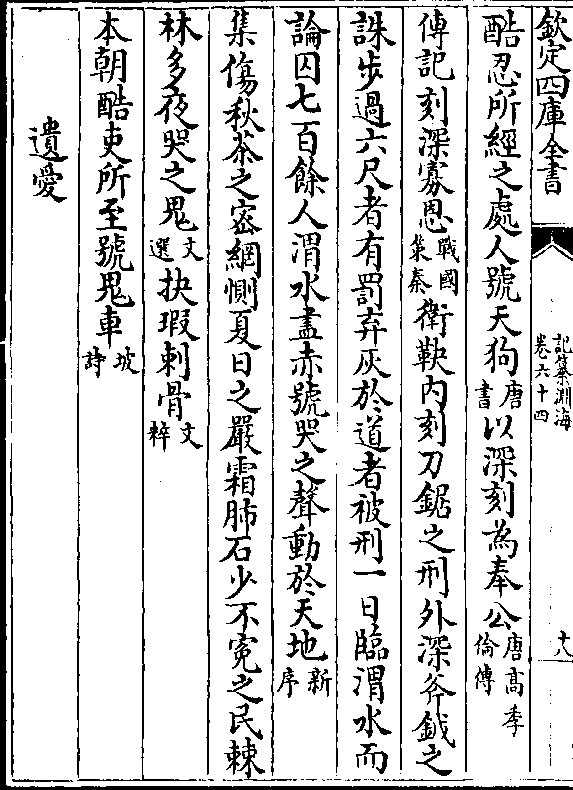 欽定四庫全書
記纂淵海
卷六十四
十八
酷忍所經之處人號天狗唐書以深刻為奉公唐高季倫傳
傳記刻深寡恩戰國策秦衛鞅內刻刀鋸之刑外深斧鉞之
誅步過六尺者有罰弃灰於道者被刑一日臨渭水而
論囚七百餘人渭水盡赤號哭之聲動於天地新序
集傷秋荼之密網惻夏日之嚴霜肺石少不寃之民棘
林多夜哭之鬼文選抉瑕刺骨文粹
本朝酷吏所至號鬼車坡詩
遺愛